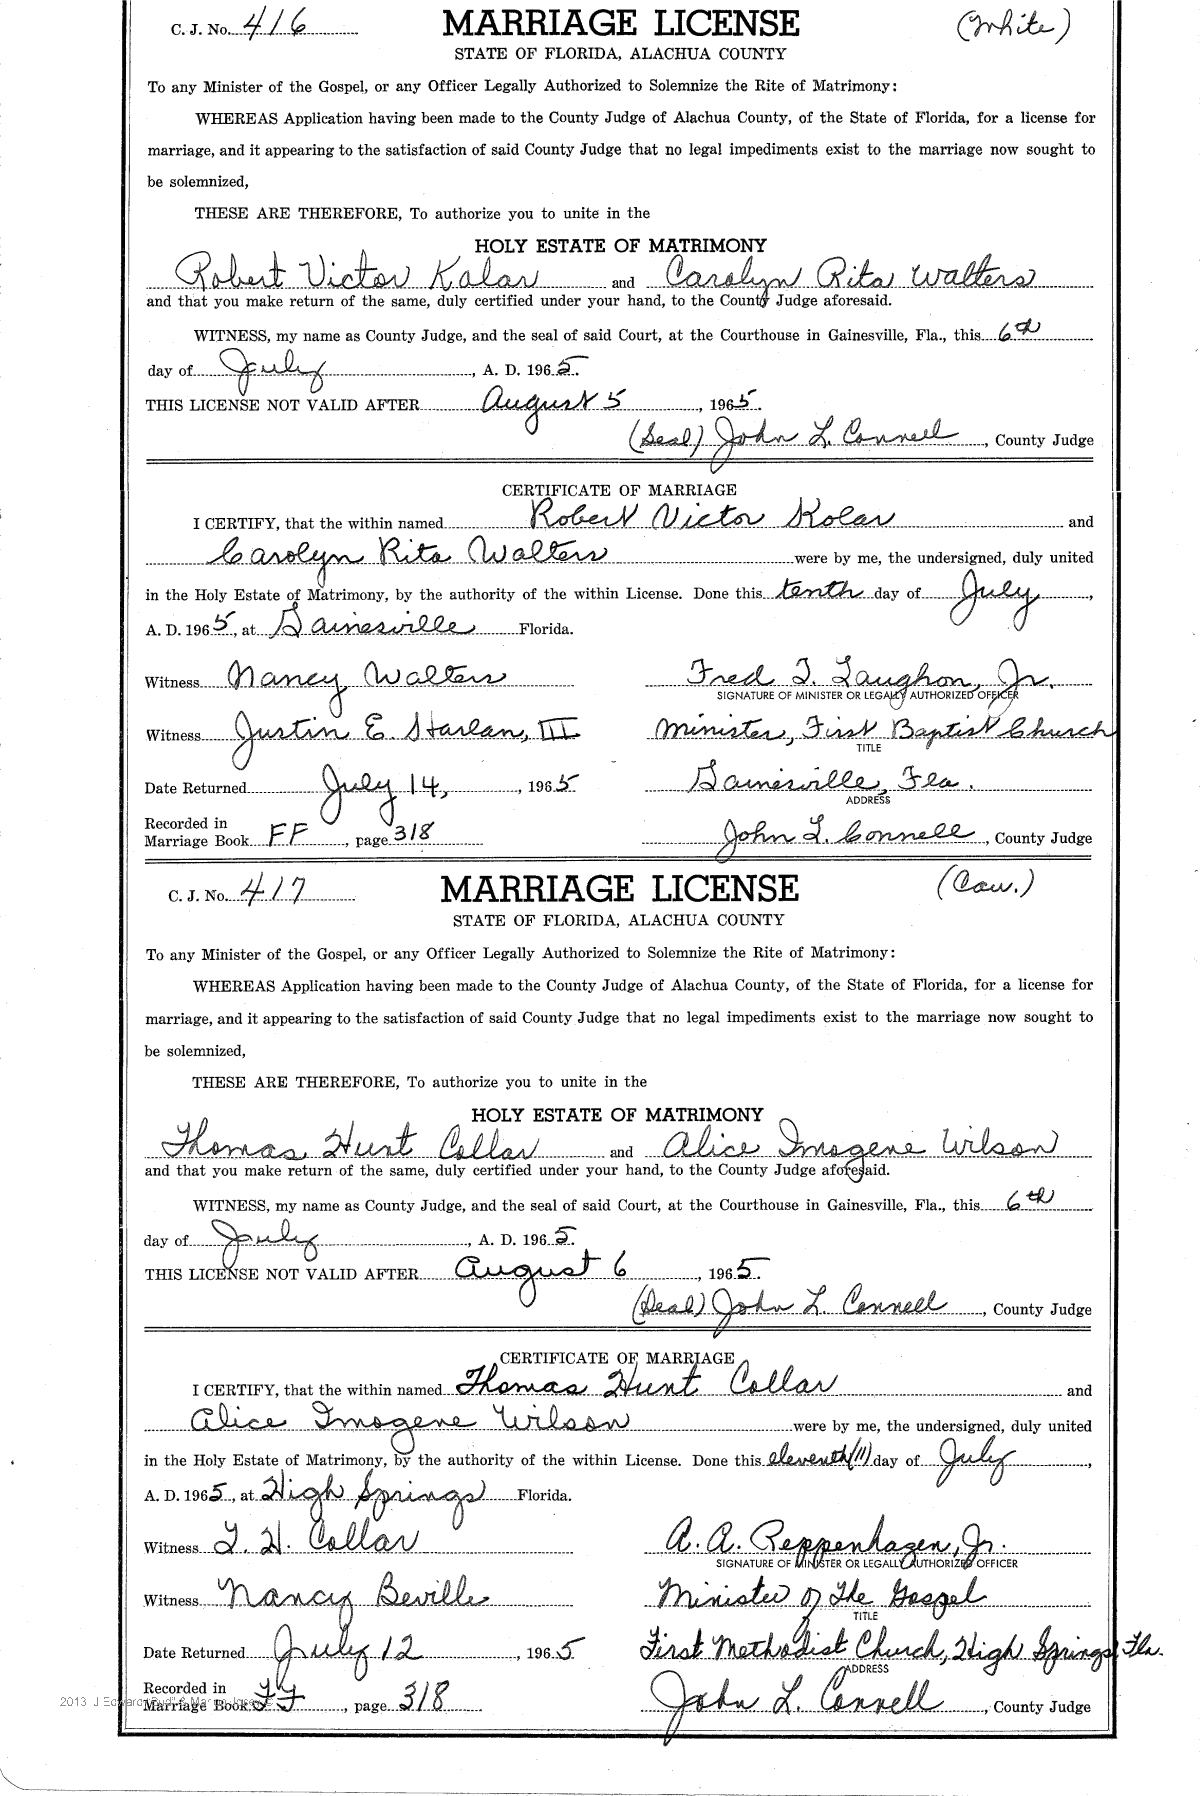 C. J. No. 416 MARRIAGE LICENSE (White)
STATE OF FLORIDA, ALACHUA COUNTY
To any Minister of the Gospel, or any Officer Legally Authorized to Solemnize the Rite of Matrimony:
WHEREAS Application having been made to the County Judge of Alachua County, of the State of Florida, for a license for
marriage, and it appearing to the satisfaction of said County Judge that no legal impediments exist to the marriage now sought to
be solemnized,
THESE ARE THEREFORE, To authorize you to unite in the
HOLY ESTATE OF MATRIMONY
Robert Victor Kolar and Carolyn Rita Walters
and that you make return of the same, duly certified under your hand, to the County Judge aforesaid.
WITNESS, my name as County Judge, and the seal of said Court, at the Courthouse in Gainesville, Fla., this 6th
day of July, A. D. 1965.
THIS LICENSE NOT VALID AFTER August 5, 1965.
(Seal) John L. Connell, County Judge
CERTIFICATE OF MARRIAGE
I CERTIFY, that the within named Robert Victor Kolar and
Carolyn Rita Walters were by me, the undersigned, duly united
in the Holy Estate of Matrimony, by the authority of the within License. Done this tenth day of July,
A. D. 1965, at Gainesville Florida.
Witness Nancy Walters Fred T. Laughon, Jr.
SIGNATURE OF MINISTER OR LEGALLY AUTHORIZED OFFICER
Witness Justin E. Harlan, III Minister, First Baptist Church
TITLE
Date Returned July 14, 1965 Gainesville, Fla.
ADDRESS
Recorded in
Marriage Book FF, page 318 John L. Connell, County Judge
C. J. No. 417 MARRIAGE LICENSE (Cau.)
STATE OF FLORIDA, ALACHUA COUNTY
To any Minister of the Gospel, or any Officer Legally Authorized to Solemnize the Rite of Matrimony:
WHEREAS Application having been made to the County Judge of Alachua County, of the State of Florida, for a license for
marriage, and it appearing to the satisfaction of said County Judge that no legal impediments exist to the marriage now sought to
be solemnized,
THESE ARE THEREFORE, To authorize you to unite in the
HOLY ESTATE OF MATRIMONY
Thomas Hunt Collar and Alice Imogene Wilson
and that you make return of the same, duly certified under your hand, to the County Judge aforesaid.
WITNESS, my name as County Judge, and the seal of said Court, at the Courthouse in Gainesville, Fla., this 6th
day of July, A. D. 1965.
THIS LICENSE NOT VALID AFTER August 6, 1965.
(Seal) John L. Connell, County Judge
CERTIFICATE OF MARRIAGE
I CERTIFY, that the within named Thomas Hunt Collar and
Alice Imogene Wilson were by me, the undersigned, duly united
in the Holy Estate of Matrimony, by the authority of the within License. Done this eleventh (11) day of July,
A. D. 1965, at High Springs Florida.
Witness T. H. Collar A. A. Reppenhagen, Jr.
SIGNATURE OF MINISTER OR LEGALLY AUTHORIZED OFFICER
Witness Nancy Beville Minister of The Gospel
TITLE
Date Returned July 12, 1965 First Methodist Church, High Springs, Fla.
ADDRESS
Recorded in
Marriage Book FF, page 318 John L. Connell, County Judge
2013 J Edward